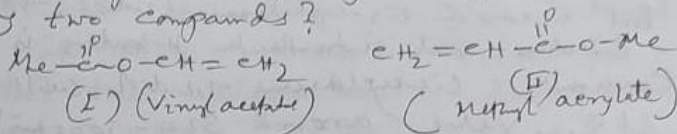 two compounds?
Me-C-O-CH=CH2
O
CH2=CH-C-O-Me
O
(I) (Vinyl acetate)
(II)
(Methyl acrylate)